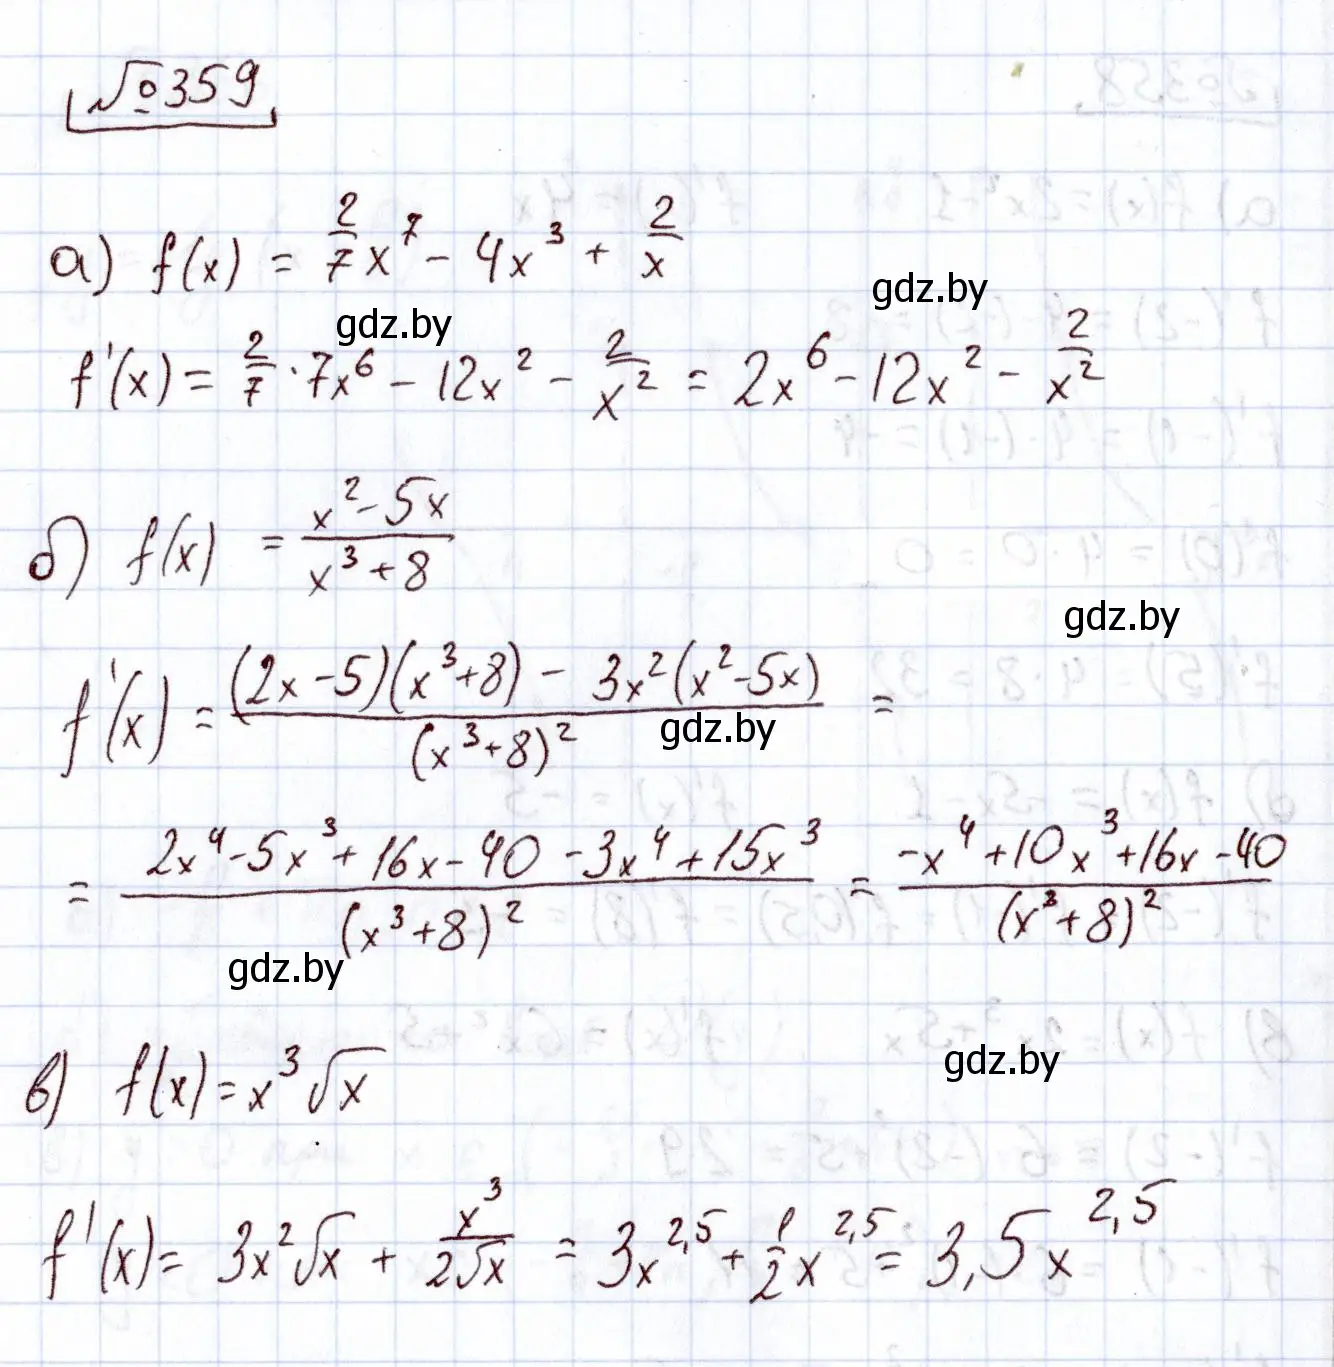 №359
а) f(x) = 2/7 x⁷ - 4x³ + 2/x
gdz.by
gdz.by
f'(x) = 2/7 · 7x⁶ - 12x² - 2/x² = 2x⁶ - 12x² - 2/x²
б) f(x) = (x² - 5x)/(x³ + 8)
gdz.by
f'(x) = ((2x - 5)(x³ + 8) - 3x²(x² - 5x))/(x³ + 8)² =
gdz.by
= (2x⁴ - 5x³ + 16x - 40 - 3x⁴ + 15x³)/(x³ + 8)² = (-x⁴ + 10x³ + 16x - 40)/(x³ + 8)²
gdz.by
в) f(x) = x³√x
gdz.by
f'(x) = 3x²√x + x³/(2√x) = 3x^2,5 + 1/2 x^2,5 = 3,5x^2,5